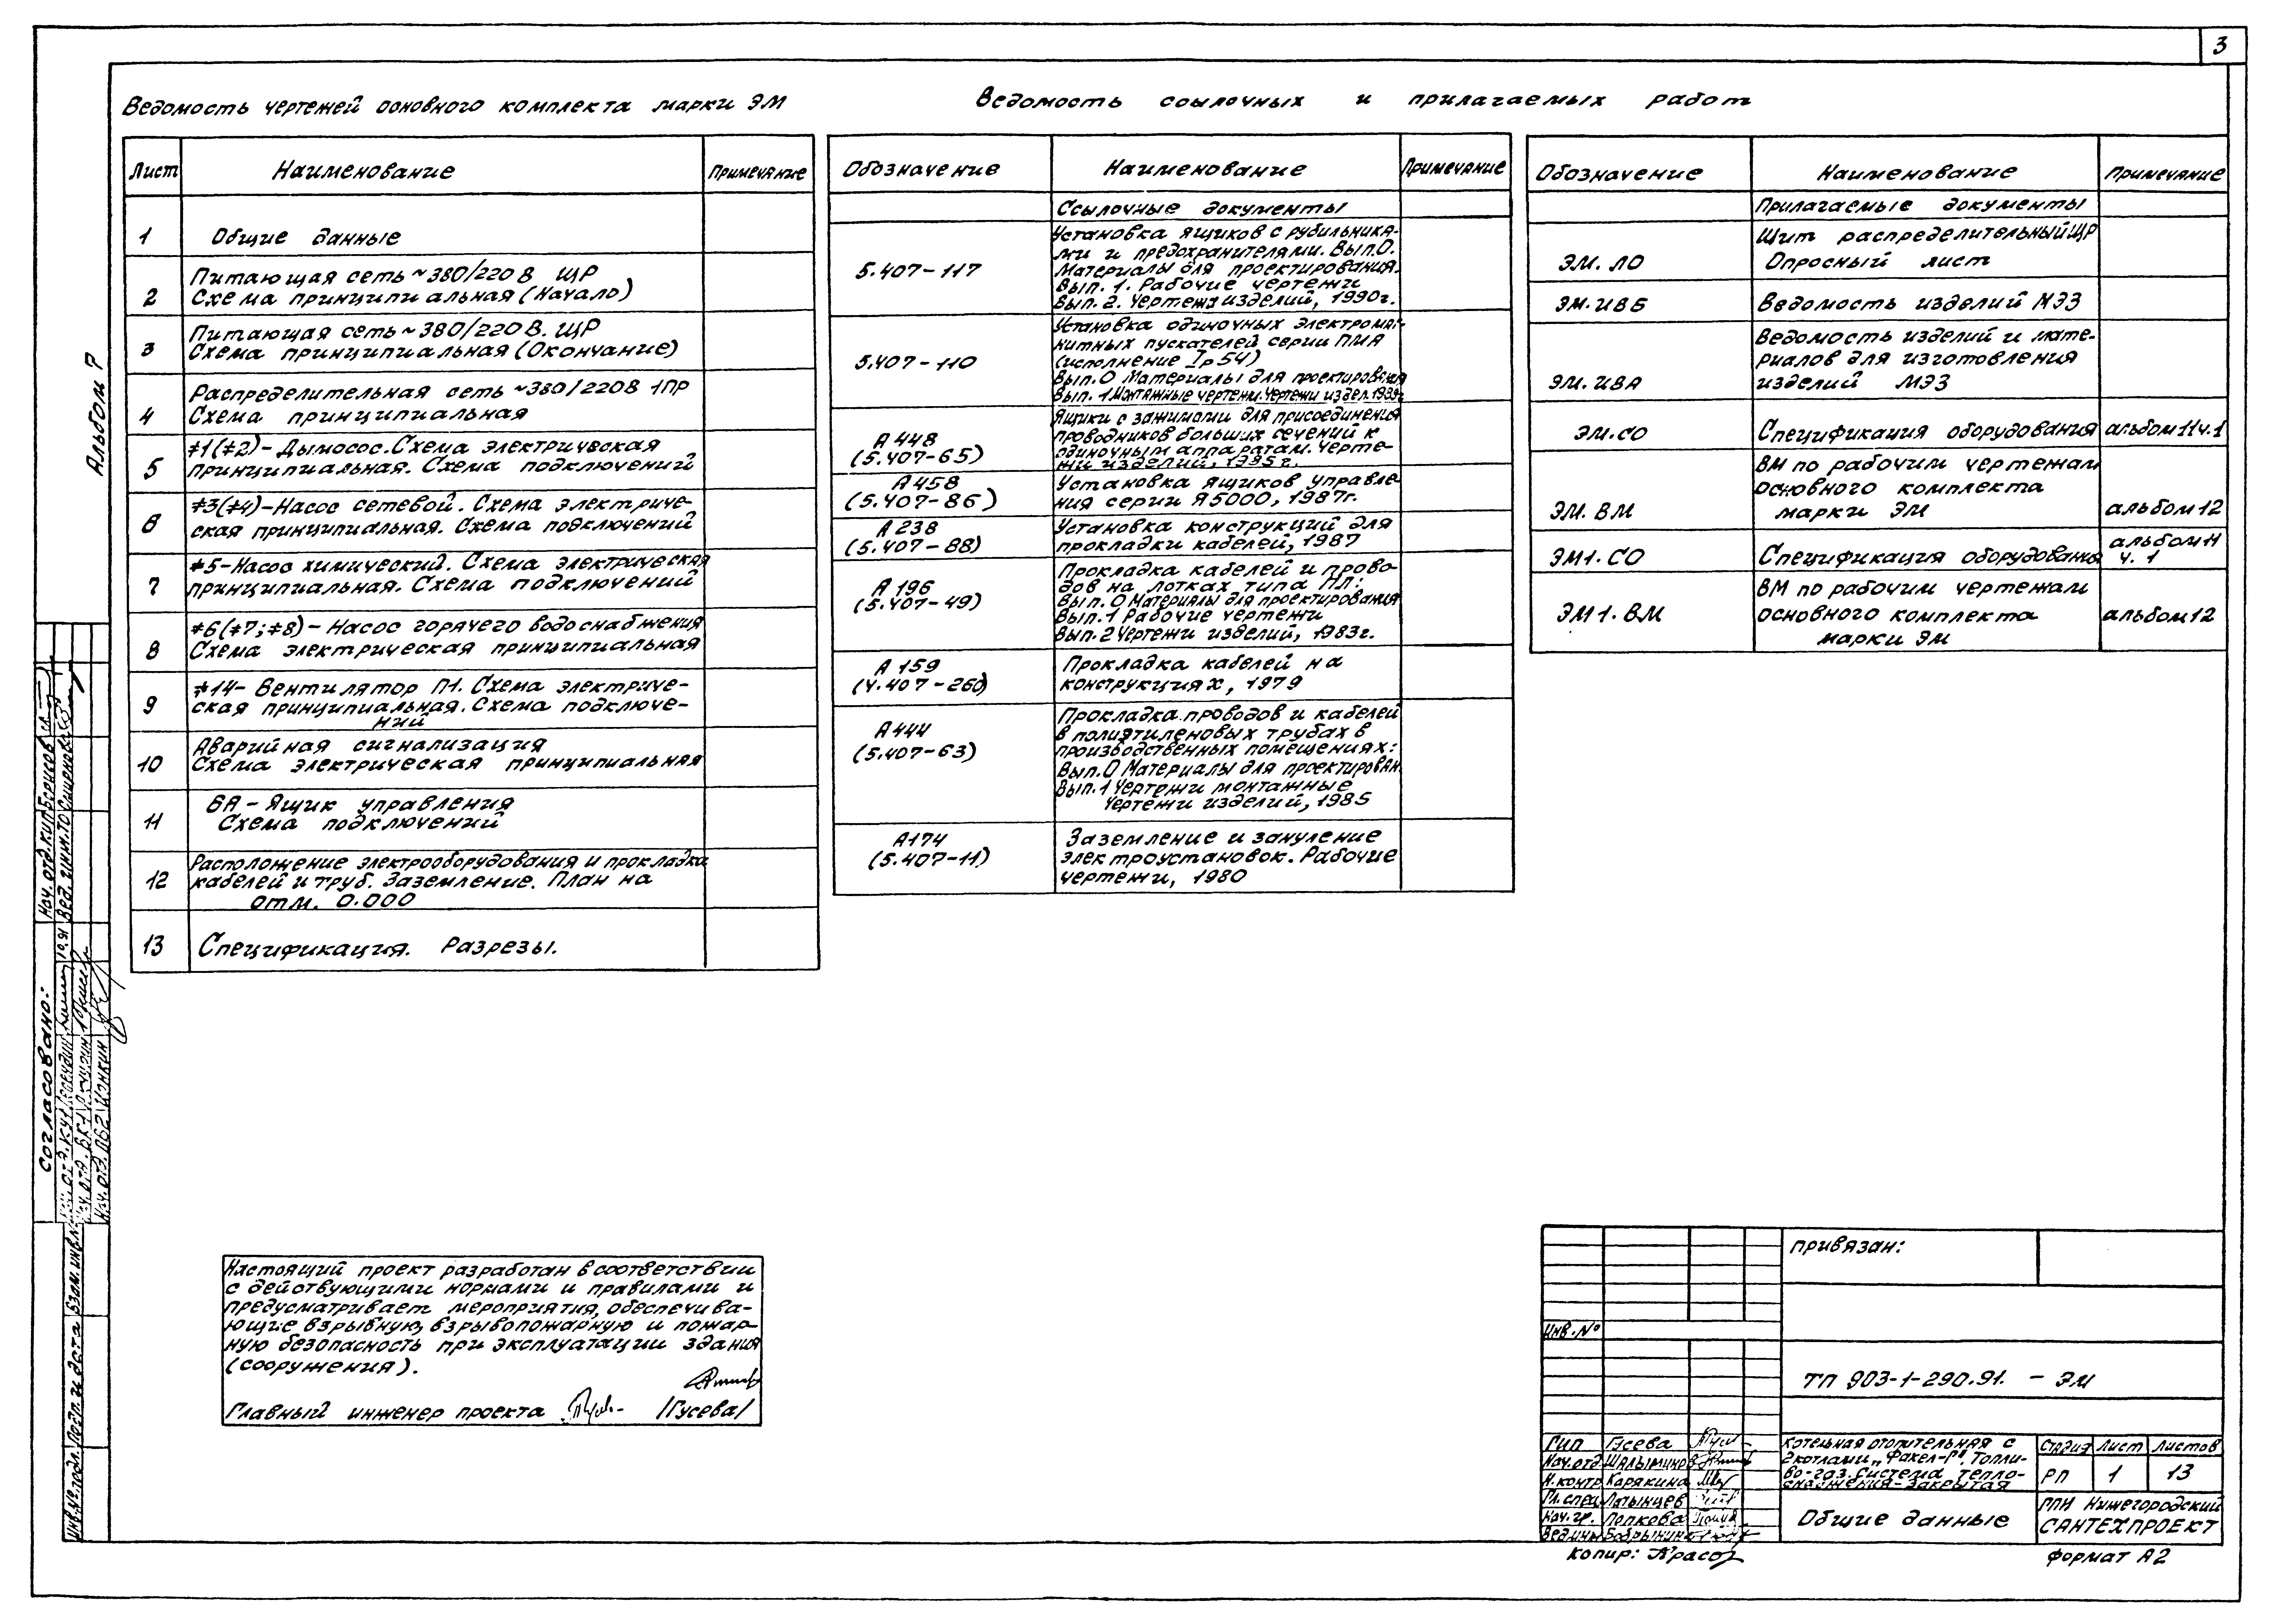 3
Ведомость чертежей основного комплекта марки ЭМ
Лист Наименование Примечание
1 Общие данные
Питающая сеть ~380/220 В ЩР
2 Схема принципиальная (Начало)
Питающая сеть ~380/220 В. ЩР
3 Схема принципиальная (Окончание)
Распределительная сеть ~380/220В 1ПР
4 Схема принципиальная
#1(#2)-Дымосос. Схема электрическая
5 принципиальная. Схема подключений
#3(#4)-Насос сетевой. Схема электриче-
6 ская принципиальная. Схема подключений
#5-Насос химический. Схема электрическая
7 принципиальная. Схема подключений
#6(#7;#8)-Насос горячего водоснабжения
8 Схема электрическая принципиальная
#14-Вентилятор П1. Схема электриче-
9 ская принципиальная. Схема подключе-
ний
Аварийная сигнализация
10 Схема электрическая принципиальная
6А-Ящик управления
11 Схема подключений
Расположение электрооборудования и прокладка
12 кабелей и труб. Заземление. План на
отм. 0.000
13 Спецификация. Разрезы.
Ведомость ссылочных и прилагаемых работ
Обозначение Наименование Примечание
Ссылочные документы
Установка ящиков с рубильника-
ми и предохранителями. Вып.0.
5.407-117 Материалы для проектирования.
Вып. 1. Рабочие чертежи
Вып. 2. Чертежи изделий, 1990г.
Установка одиночных электромаг-
нитных пускателей серии ПМЛ
5.407-110 (исполнение Iр54)
Вып.0 Материалы для проектирования
Вып. 1 Монтажные чертежи. Чертежи издел.
Ящики с зажимами для присоединения
А 448 проводников больших сечений к
(5.407-65) одиночным аппаратам. Черте-
жи изделий, 1985г.
А 458 Установка ящиков управле-
(5.407-86) ния серии Я5000, 1987г.
А 238 Установка конструкций для
(5.407-88) прокладки кабелей, 1987
Прокладка кабелей и прово-
А 196 дов на лотках типа НЛ:
(5.407-49) Вып. 0 Материалы для проектирования
Вып.1 Рабочие чертежи
Вып.2 Чертежи изделий, 1983г.
А 159 Прокладка кабелей на
(4.407-260) конструкциях, 1979
Прокладка проводов и кабелей
А444 в полиэтиленовых трубах в
(5.407-63) производственных помещениях:
Вып.0 Материалы для проектирован.
Вып.1 Чертежи монтажные
Чертежи изделий, 1985
А174 Заземление и зануление
(5.407-11) электроустановок. Рабочие
чертежи, 1980
Обозначение Наименование Примечание
Прилагаемые документы
Щит распределительный ЩР
ЭМ. ЛО Опросный лист
ЭМ.ИВБ Ведомость изделий МЭЗ
Ведомость изделий и мате-
риалов для изготовления
ЭМ.ИВА изделий МЭЗ
ЭМ.СО Спецификация оборудования альбом 11 ч.1
ВМ по рабочим чертежам
основного комплекта
ЭМ.ВМ марки ЭМ альбом 12
альбом 11
ЭМ1.СО Спецификация оборудования ч. 1
ВМ по рабочим чертежам
ЭМ1.ВМ основного комплекта альбом 12
марки ЭМ
Альбом Р
Нач. отд. КИП Борисов
Вед. инж. ТО Смирнова
Согласовано:
Нач. отд. ПБ2 Ионкин
Инв.№подл. Подп. и дата Взам. инв.№
Настоящий проект разработан в соответствии
с действующими нормами и правилами и
предусматривает мероприятия, обеспечива-
ющие взрывную, взрывопожарную и пожар-
ную безопасность при эксплуатации здания
(сооружения).
Главный инженер проекта /Гусева/
привязан:
Инв.№
ТП 903-1-290.91. - ЭМ
ГИП Гусева
Нач.отд. Шалыминов
Н.контр Карякина
Гл.спец Латынцев
Нач.гр. Попкова
Вед.инж Бобрынин
Котельная отопительная с
2 котлами „Факел-Г". Топли-
во-газ. Система тепло-
снабжения-закрытая
Стадия Лист Листов
РП 1 13
Общие данные
ГПИ Нижегородский
САНТЕХПРОЕКТ
Копир:
Формат А2